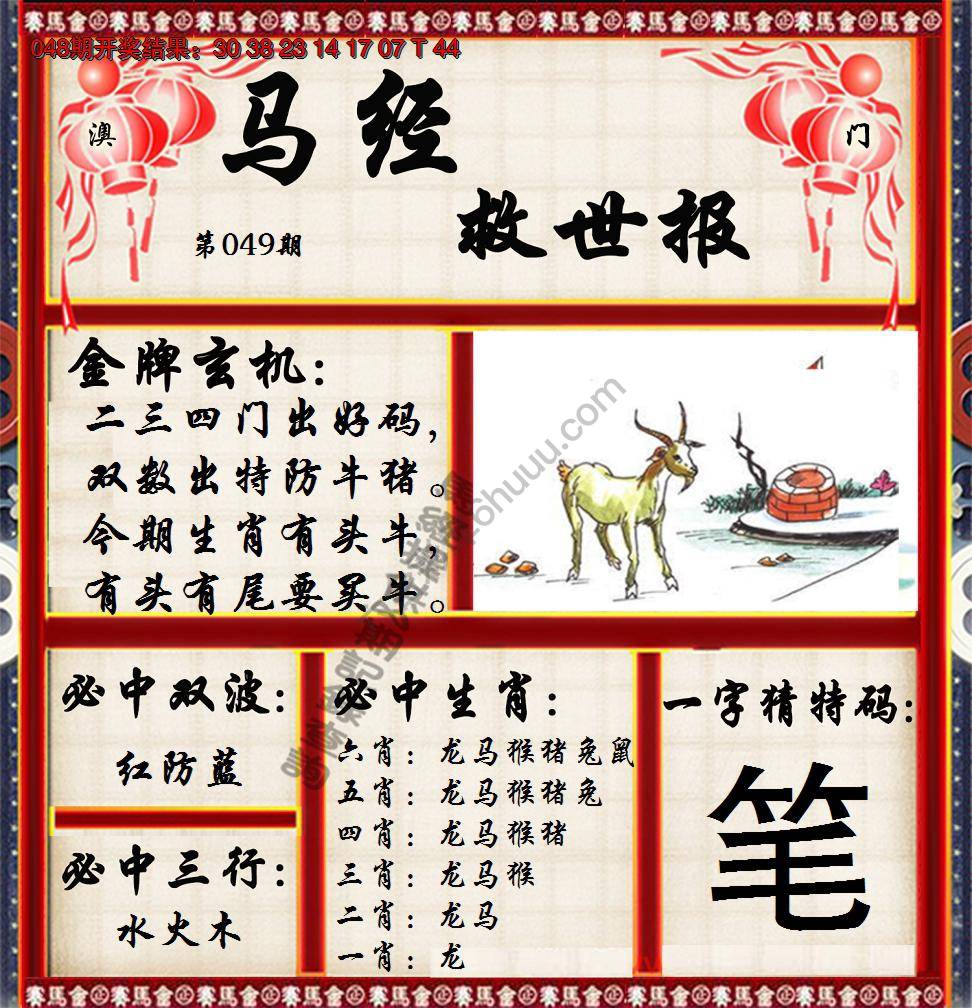 赛馬會
048期开奖结果：30 38 23 14 17 07 T 44
澳
门
马经
救世报
第049期
金牌玄机：
二三四门出好码，
双数出特防牛猪。
今期生肖有头牛，
有头有尾要买牛。
必中双波：
红防蓝
必中三行：
水火木
必中生肖：
六肖：龙马猴猪兔鼠
五肖：龙马猴猪兔
四肖：龙马猴猪
三肖：龙马猴
二肖：龙马
一肖：龙
一字猜特码：
笔